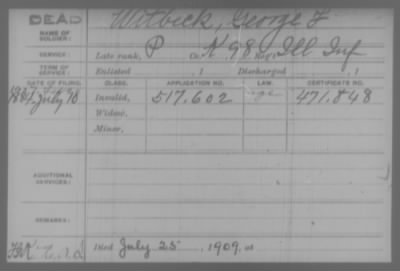 DEAD
Witbeck, George F
NAME OF SOLDIER:
SERVICE: Late rank, P Co. K 98 Reg't Ill Inf
TERM OF SERVICE: Enlisted , 1 Discharged , 1
DATE OF FILING. CLASS. APPLICATION NO. LAW. CERTIFICATE NO.
July Invalid, 517.602 471.848
Widow,
Minor,
ADDITIONAL SERVICES:
REMARKS:
Died July 25 , 1909, at